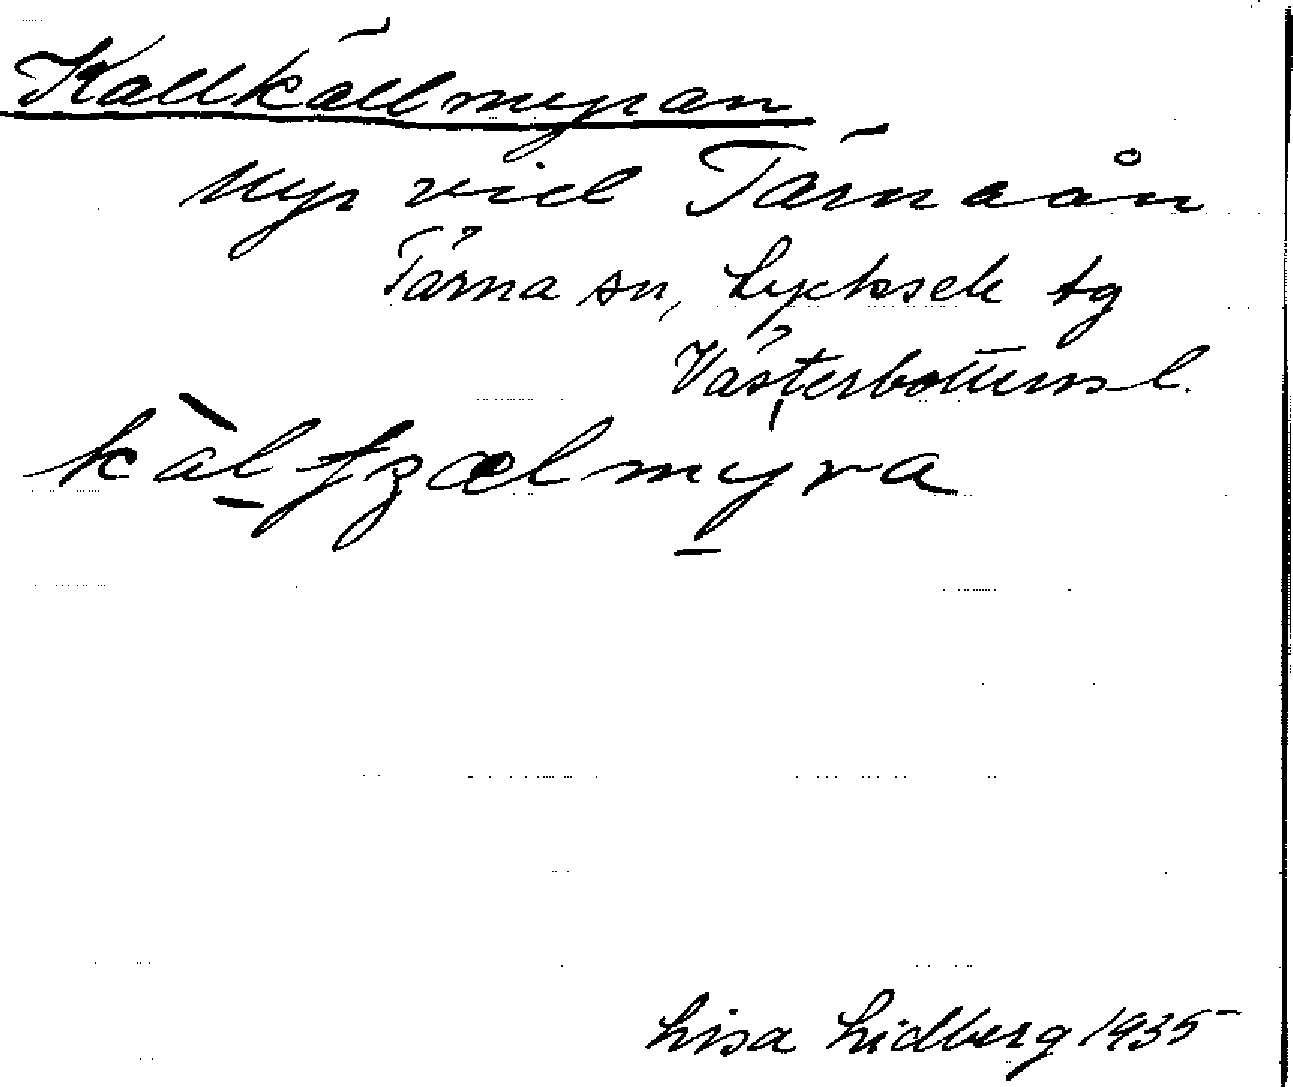 Kallkällmyran
Myr vid Tärnaån
Tärna sn, Lycksele tg
Västerbottens l.
kàlţʒælmyra
Lisa Lidberg 1935